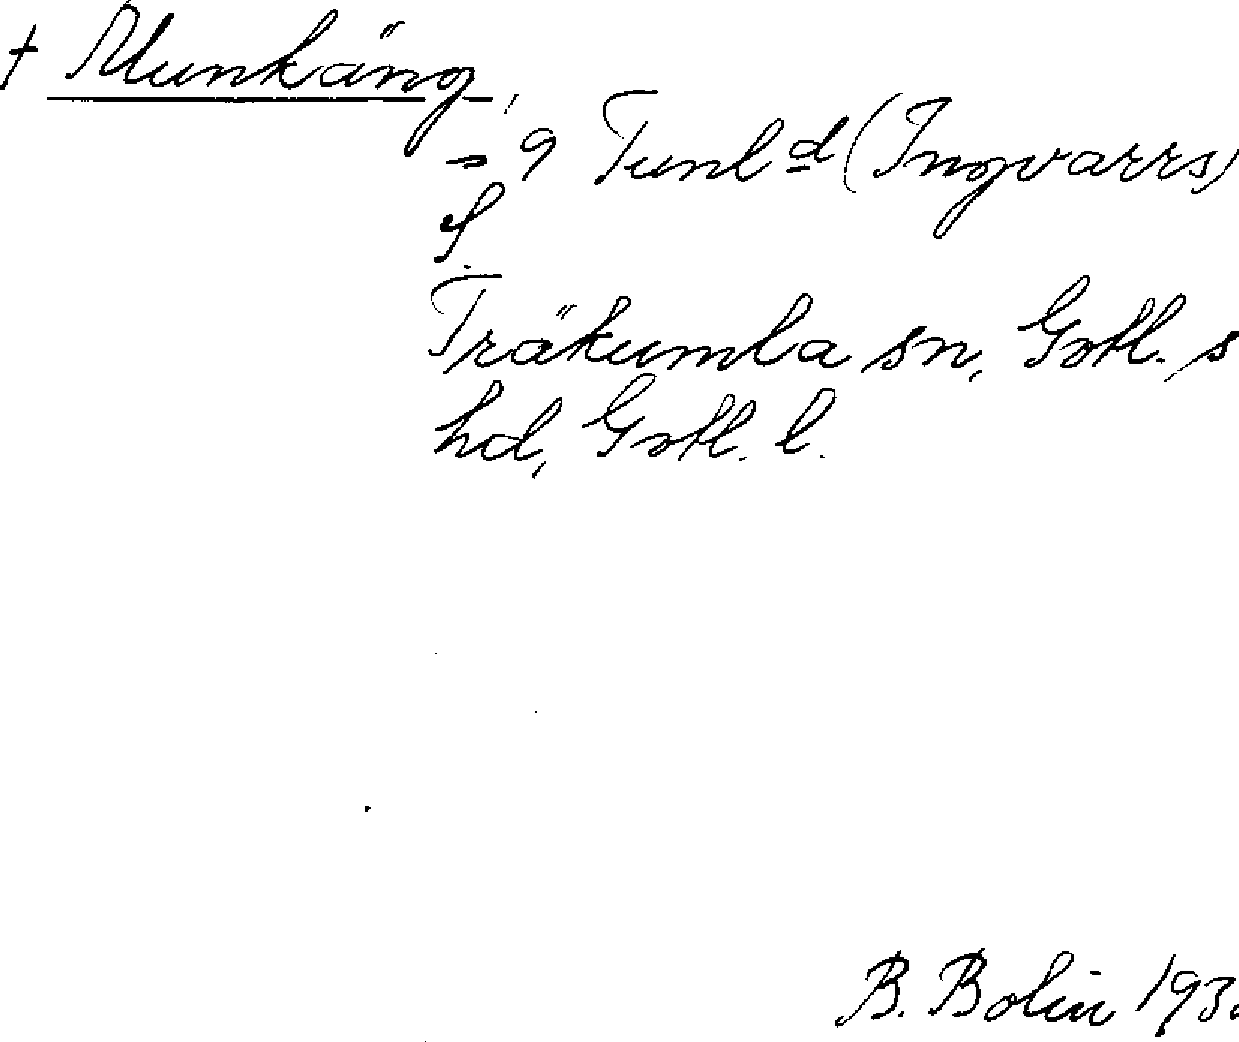 † Munkäng,
= 9 Tunl d (Ingvarrs)
f.
Träkumla sn, Gotl. s
hd, Gotl. l.
B. Bolin 193